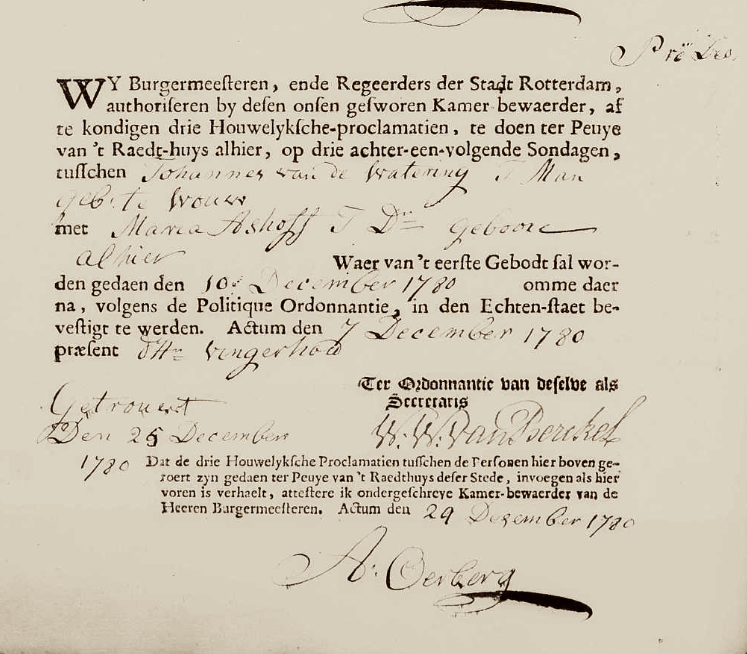 Pro Deo.
WY Burgermeesteren, ende Regeerders der Stadt Rotterdam,
authoriseren by desen onsen gesworen Kamer-bewaerder, af
te kondigen drie Houwelyksche-proclamatien, te doen ter Peuye
van 't Raedt-huys alhier, op drie achter-een-volgende Sondagen,
tusschen Johannes van de Watering J Man
geb: te Wouw
met Maria Ashoff J Dr geboore
alhier Waer van 't eerste Gebodt sal wor-
den gedaen den 10e December 1780 omme daer
na, volgens de Politique Ordonnantie, in den Echten-staet be-
vestigt te werden. Actum den 7 December 1780
præsent d'Hr Vingerhod
Ter Ordonnantie van deselve als
Secretaris
Getrouwt
Den 25 December
W: W: Van Berckel
1780 Dat de drie Houwelyksche Proclamatien tusschen de Personen hier boven ge-
roert zyn gedaen ter Peuye van 't Raedthuys deser Stede, invoegen als hier
voren is verhaelt, attestere ik ondergeschreve Kamer-bewaerder van de
Heeren Burgermeesteren. Actum den 29 December 1780
A: Oerberg